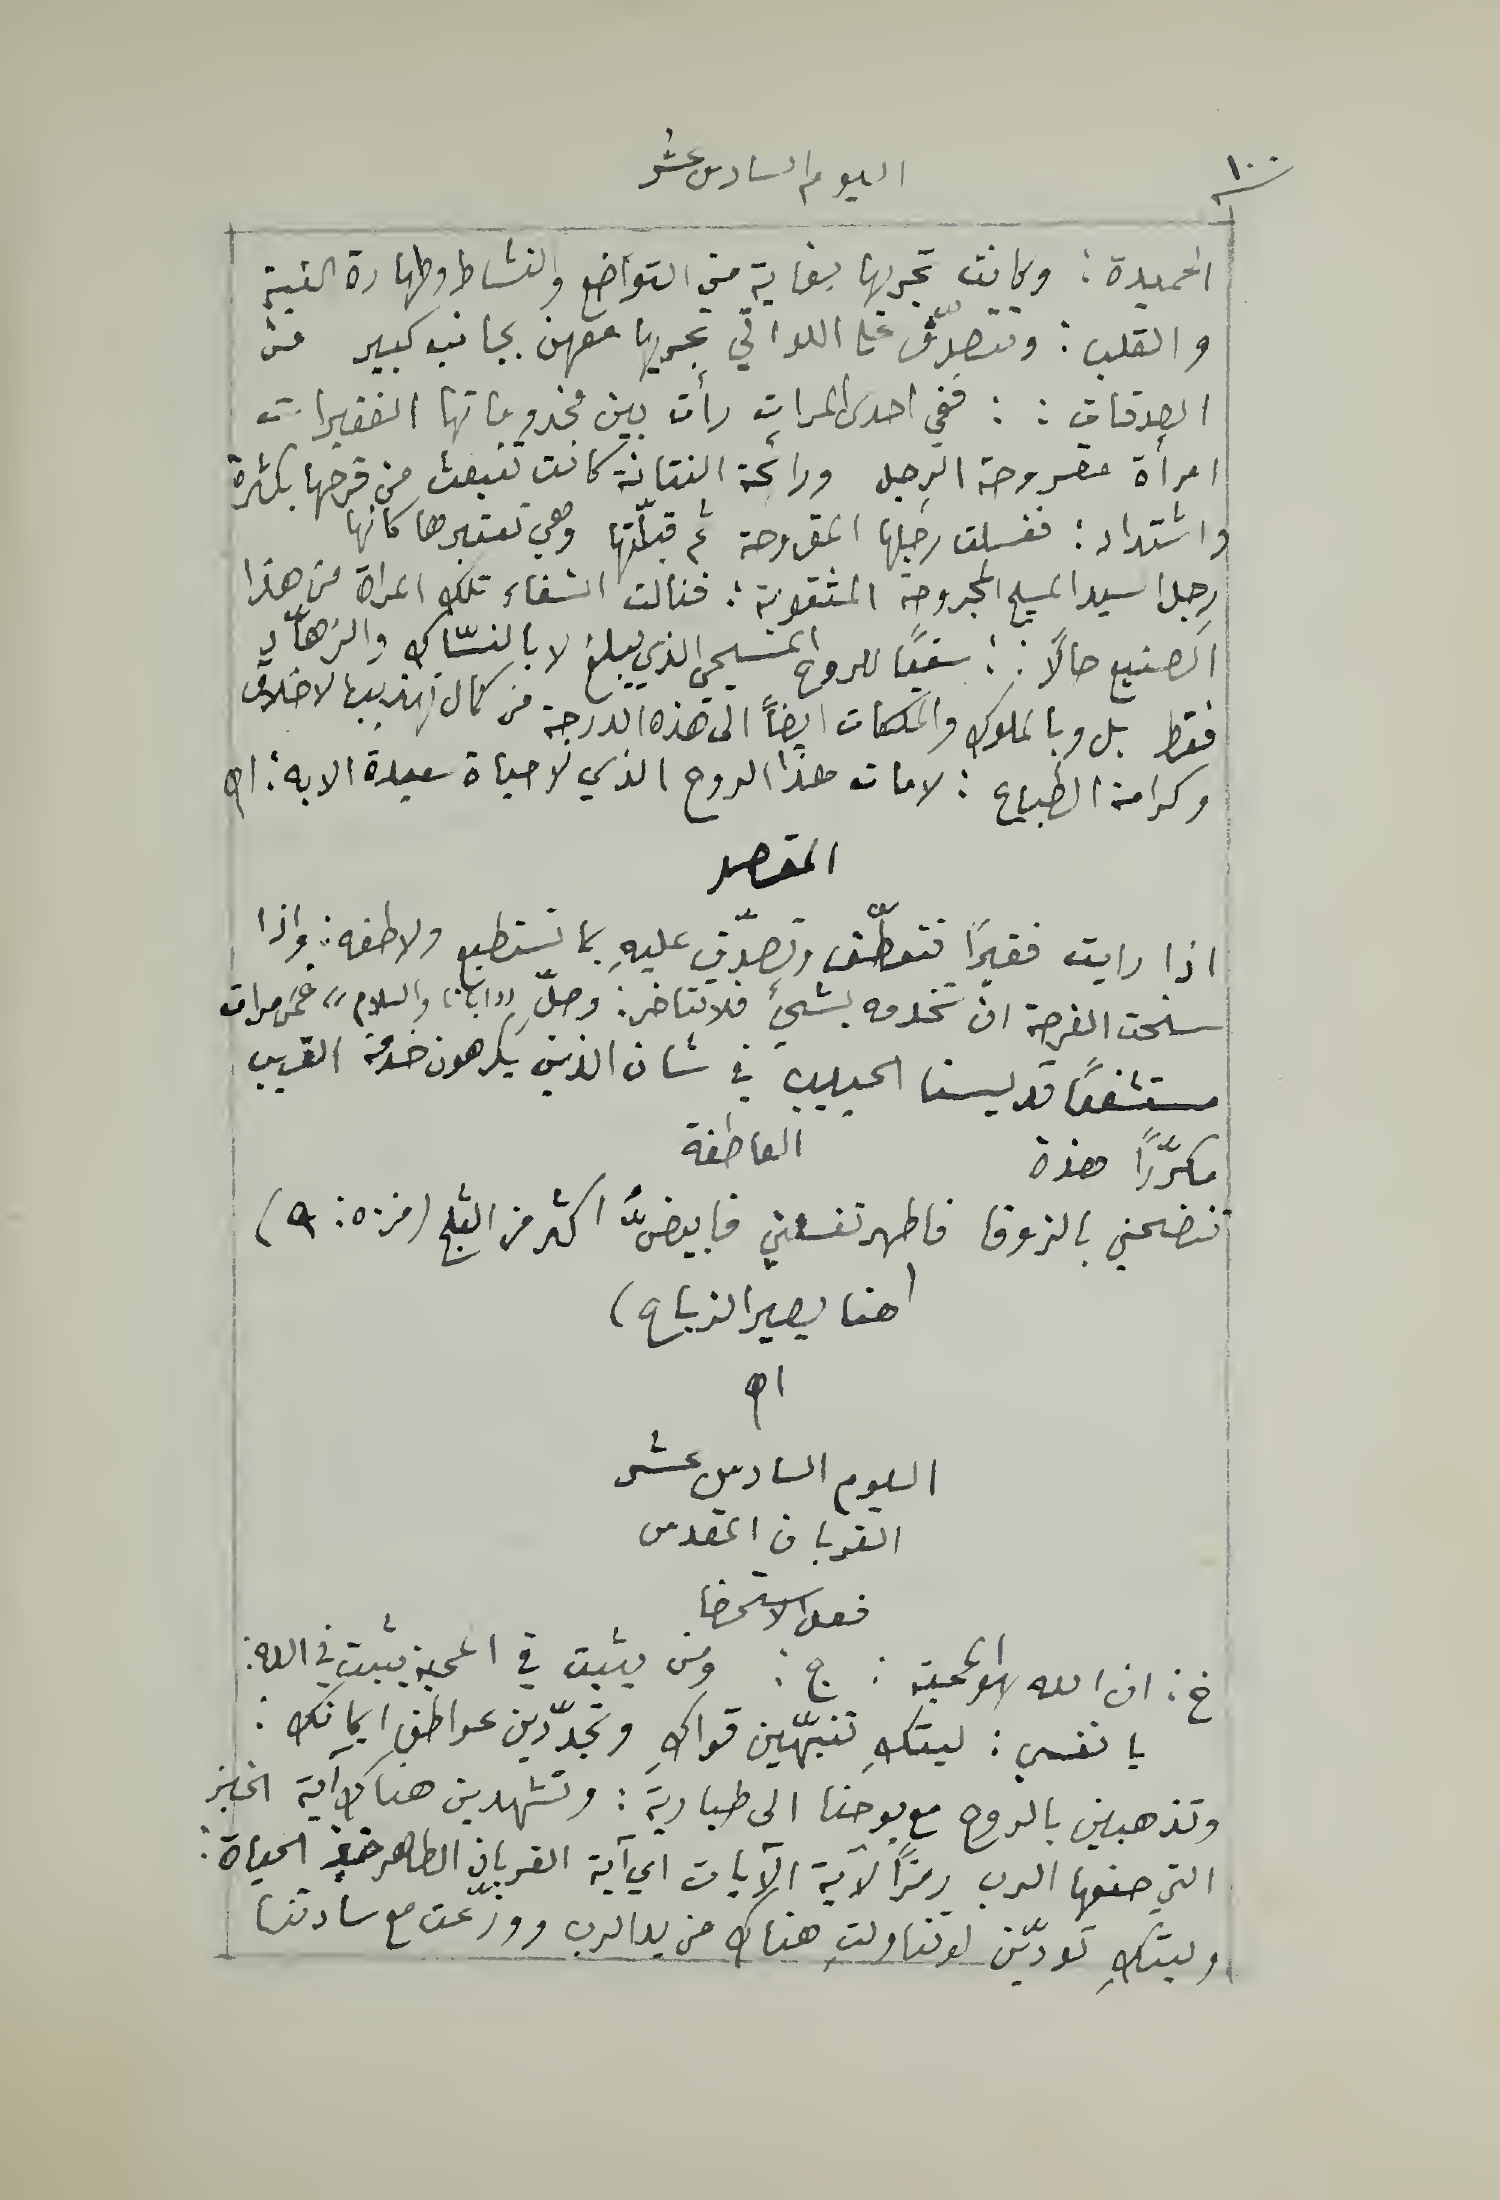 ١٠٠
اليوم السادس عشر
الحميدة : وكانت تجريها بغاية من التواضع والنشاط وطهارة النية
والقلب : وتتصدّق على اللواتي تجريها معهن بجانب كبير من
الصدقات : : ففي احدى المرات رأت بين مخدوماتها الفقيرات
امرأة مقروحة الرجل ورائحة النتانة كانت تنبعث من قرحها بكثرة
واشتداد : فغسلت رجلها المقروحة ثم قبلّتها وهي تعتبرها كانها
رجل السيد المسيح المجروحة المثقوبة : فنالت الشفاء تلك المراة من هذا
الصنيع حالاً : : سقيًا للروح المسيحي الذي يبلغ لا بالنسّاك والزهّاد
فقط بل وبالملوك والملكات ايضاً الى هذه الدرجة من كمال تهذيب الاخلاق
وكرامة الطباع : لا مات هذا الروح الذي لا حياة سعيدة الا به : اه
المقصد
اذا رايت فقيرًا فتعطّف وتصدّق عليهِ بما تستطيع ولاطفه : واذا
سنحت الفرصة ان تخدمه بشيءٍ فلا تتاخر : وصلِّ «ابانا والسلام» خمس مرات
مستشفعًا قديسنا الحبيب في شان الذين يكرهون خدمة القريب
مكرّرًا هذة العاطفة
تنضحني بالزوفا فاطهر تغسلني فابيضُّ اكثر من الثلج (مز ٥٠ : ٩)
(هنا يصير الزياح)
اه
اليوم السادس عشر
القربان المقدس
فعل الاستحضا
خ : ان الله هو المحبة : ج : ومن يثبت في المحبة يثبت في الله :
يا نفسي : ليتكِ تنبهّين قواكِ وتجدّدين عواطف ايمانك :
وتذهبين بالروح مع يوحنا الى طبارية : وتشهدين هناك آية الخبز
التي صنعها الرب رمزًا لآية الآيات اي آية القربان الطاهر خبز الحياة :
وليتكِ تودّين لو تناولتِ هناك من يد الرب ووزّعت مع سادتنا